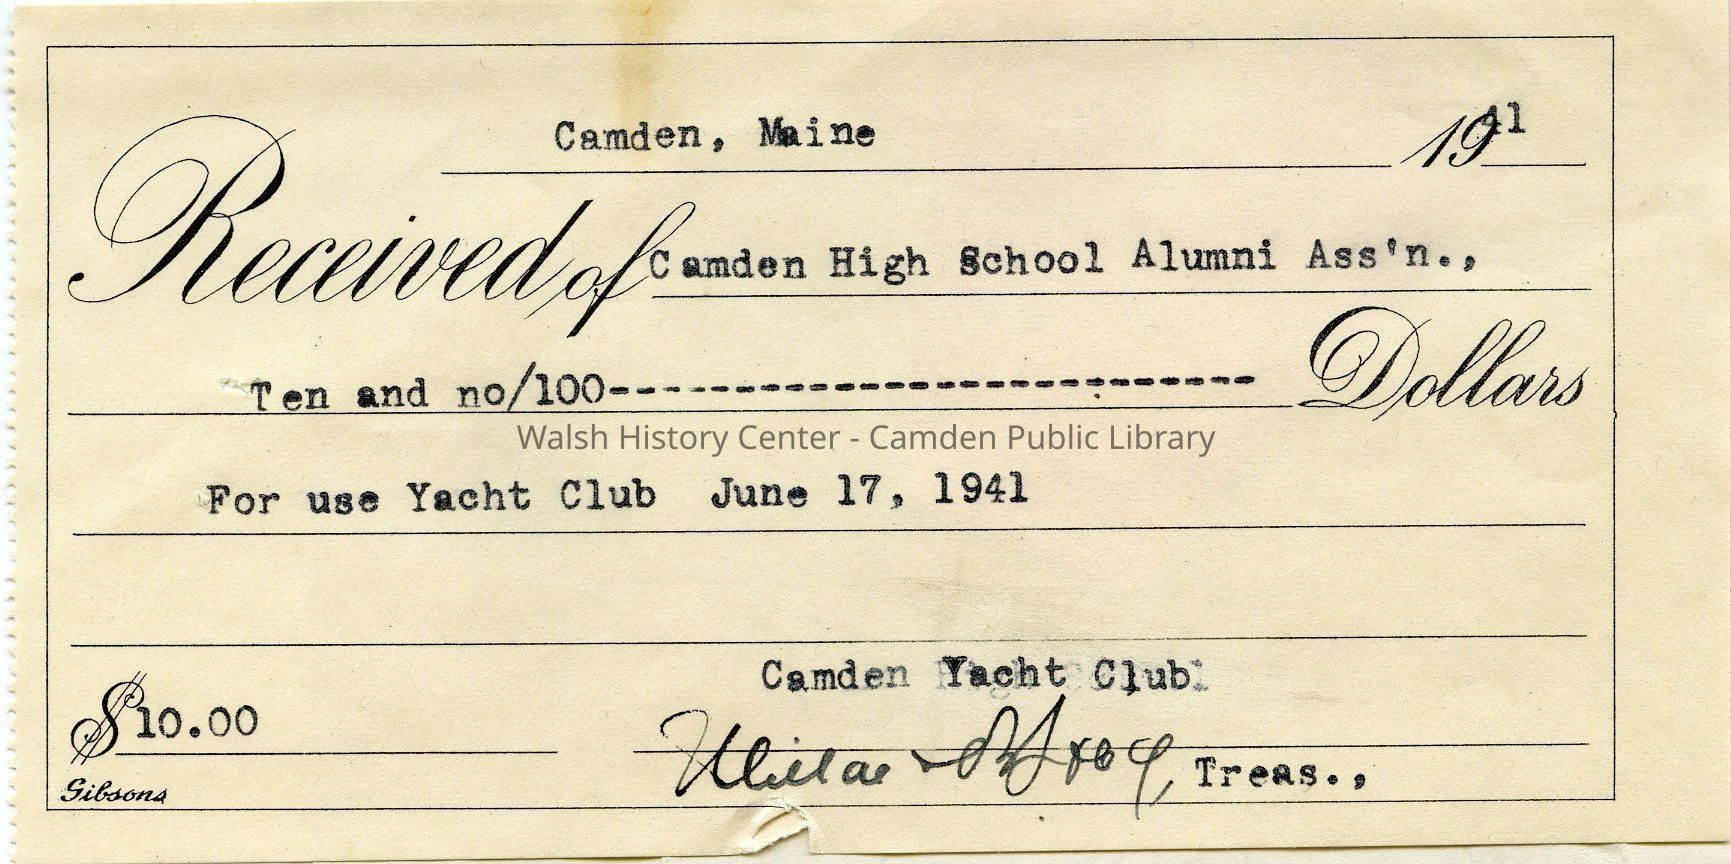 Camden, Maine 1941
Received of Camden High School Alumni Ass'n.,
Ten and no/100--------------------------- Dollars
Walsh History Center - Camden Public Library
For use Yacht Club June 17, 1941
Camden Yacht Club
$10.00
Treas.,
Gibsons